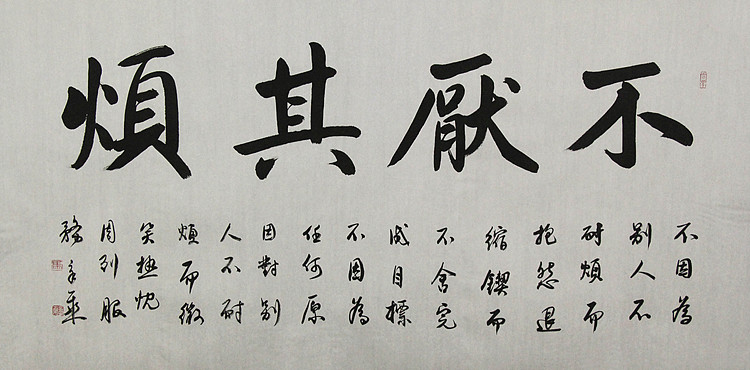 不厭其煩
不因為
别人不
耐煩而
抱怨退
缩鍥而
不舍完
成目標
不因為
任何原
因對别
人不耐
煩而微
笑熱忱
周到服
務